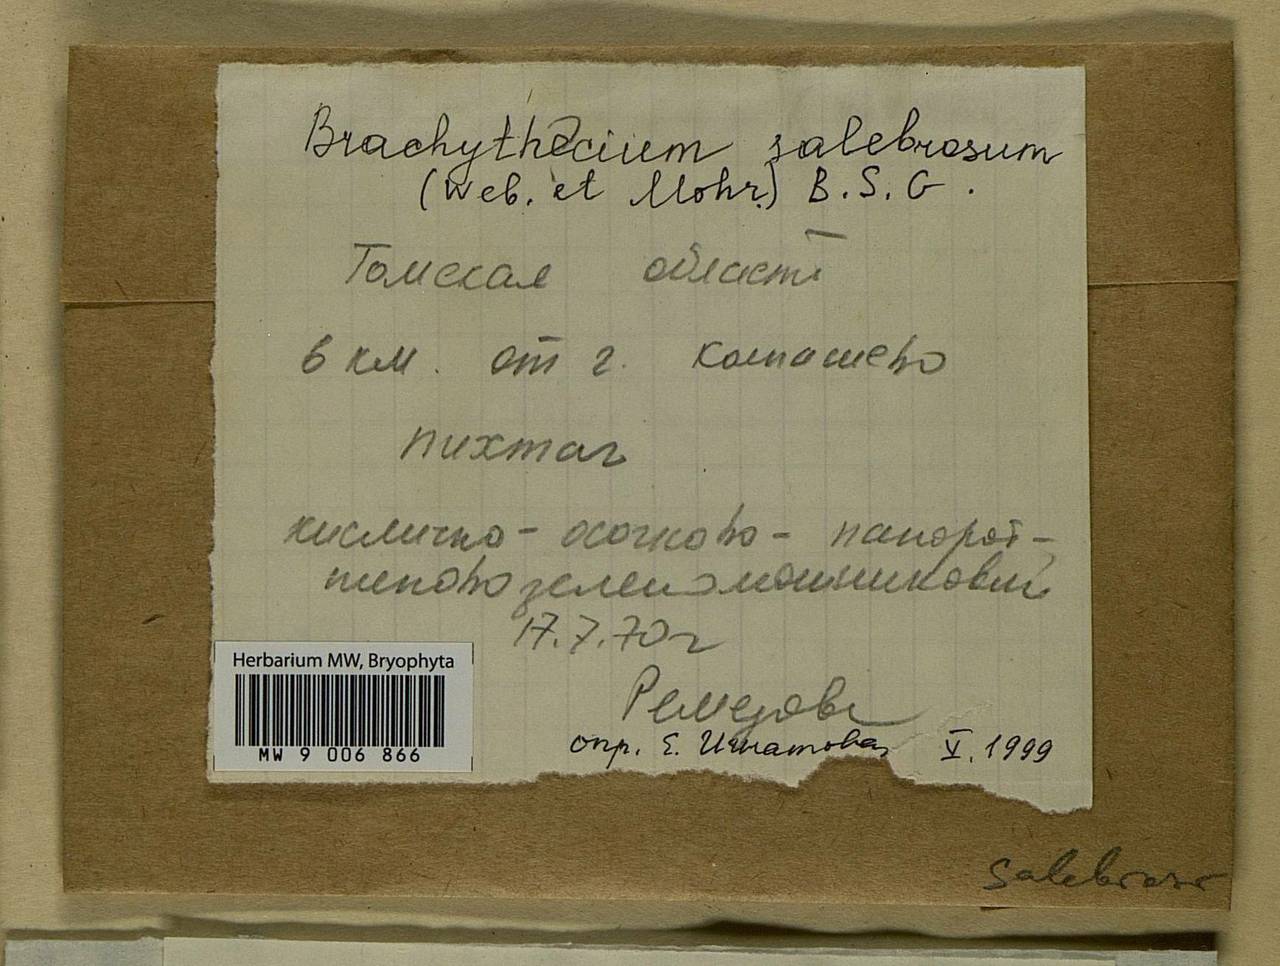 Brachythecium salebrosum
(Web. et Mohr.) B.S.G.
Томская область
6 км. от г. Колпашево
пихтач
кислично-осочково-папорот-
никово зеленомошниковый
17.7.70г
Ремезова
опр. Е. Игнатова V.1999
Herbarium MW, Bryophyta
MW 9 006 866